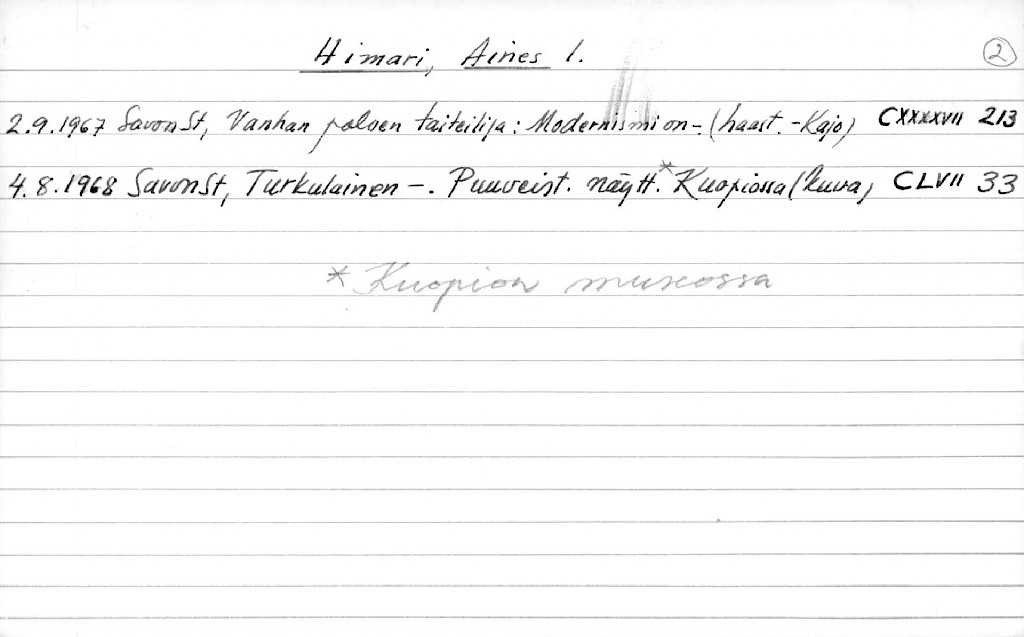 Himari, Aines I. 2
2.9.1967 SavonSt, Vanhan polven taiteilija: Modernismi on-. (haast. -Kajo) CXXXXVII 213
4.8.1968 SavonSt, Turkulainen -. Puuveist. näytt.* Kuopiossa (kuva) CLVII 33
* Kuopion museossa